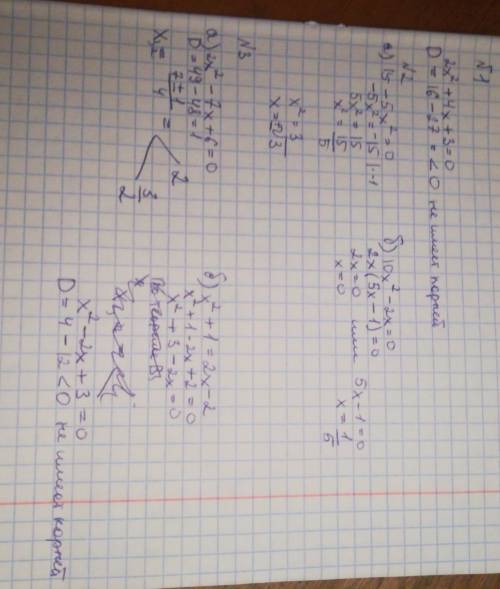 N1
2x² + 4x + 3 = 0
D = 16 - 27 = < 0 не имеет корней
N2
а) 15 - 5x² = 0
-5x² = -15 | ·-1
5x² = 15
x² = 15/5
x² = 3
x = √3
б) 10x² - 2x = 0
2x(5x - 1) = 0
2x = 0 или 5x - 1 = 0
x = 0 x = 1/5
N3
а) 2x² - 7x + 6 = 0
D = 49 - 48 = 1
x₁,₂ = (7 ± 1)/4 =
2
3/2
б) x² + 1 = 2x - 2
x² + 1 - 2x + 2 = 0
x² + 3 - 2x = 0
x² - 2x + 3 = 0
D = 4 - 12 < 0 не имеет корней